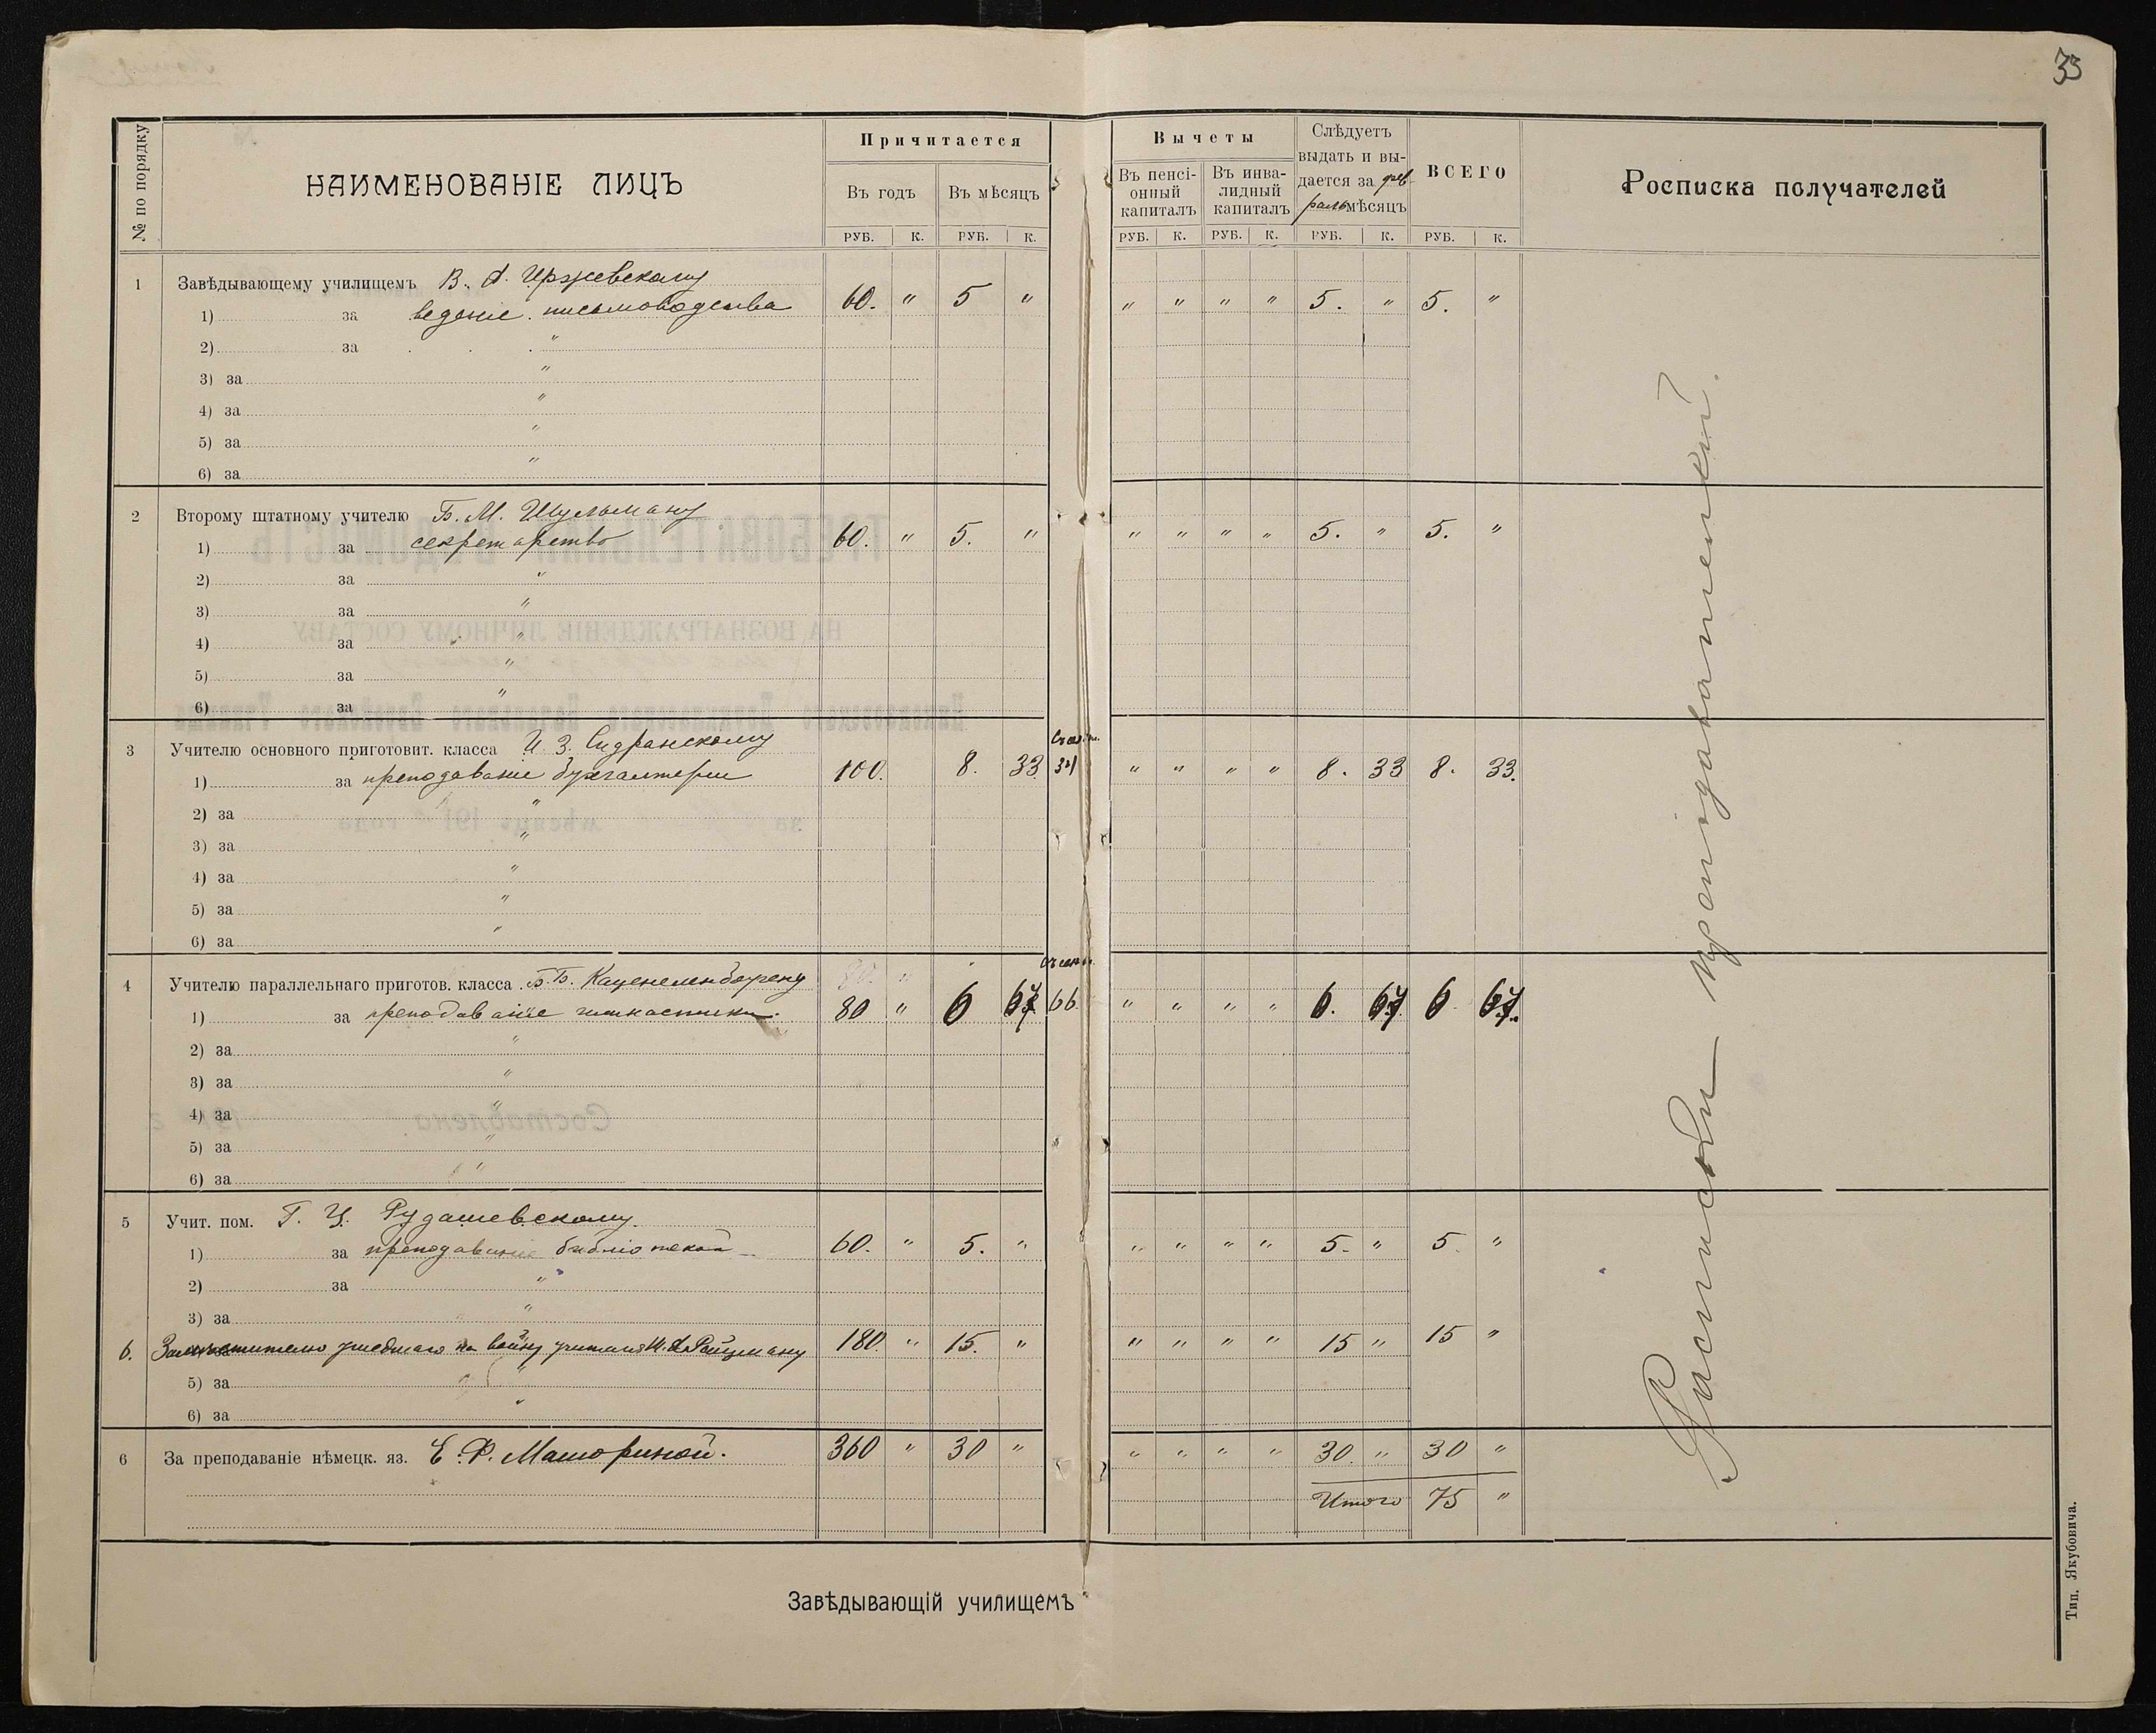 33
№ по порядку
НАИМЕНОВАНІЕ ЛИЦЪ
Причитается
Въ годъ
Въ мѣсяцъ
РУБ. К. РУБ. К.
Вычеты
Въ пенсі-
онный
капиталъ
Въ инва-
лидный
капиталъ
Слѣдуетъ
выдать и вы-
дается за фев-
раль мѣсяцъ
ВСЕГО
РУБ. К. РУБ. К. РУБ. К. РУБ. К.
Росписка получателей
1 Завѣдывающему училищемъ В. А. Иржевскому
1) за веденіе письмоводства 60. " 5 " " " " " 5. " 5. "
2) за "
3) за "
4) за "
5) за "
6) за "
2 Второму штатному учителю Б. М. Шульману
1) за секретарство 60. " 5. " " " " " 5. " 5. "
2) за "
3) за "
4) за "
5) за "
6) за "
3 Учителю основного приготовит. класса И. З. Сидранскому
1) за преподаваніе бухгалтеріи 100. 8. 33 34 " " " " 8. 33 8. 33.
2) за "
3) за "
4) за "
5) за "
6) за "
4 Учителю параллельнаго приготов. класса Б. Б. Каценеленбогену
1) за преподаваніе гимнастики. 80 " 6 67 66 " " " " 6. 67 6 67.
2) за "
3) за "
4) за "
5) за "
6) за "
5 Учит. пом. Г. Ц. Рудашевскому.
1) за преподаваніе библіотекой 60. " 5. " " " " " 5. " 5. "
2) за "
3) за "
6. Заместителю ушедшаго на войну учителя 180. " 15. " " " " " 15 " 15 "
5) за "
6) за "
6 За преподаваніе нѣмецк. яз. Е. Ф. Машориной. 360 " 30 " " " " " 30. " 30 "
Итого 75 "
Расписки преподавателей.
Завѣдывающій училищемъ
Тип. Якубовича.